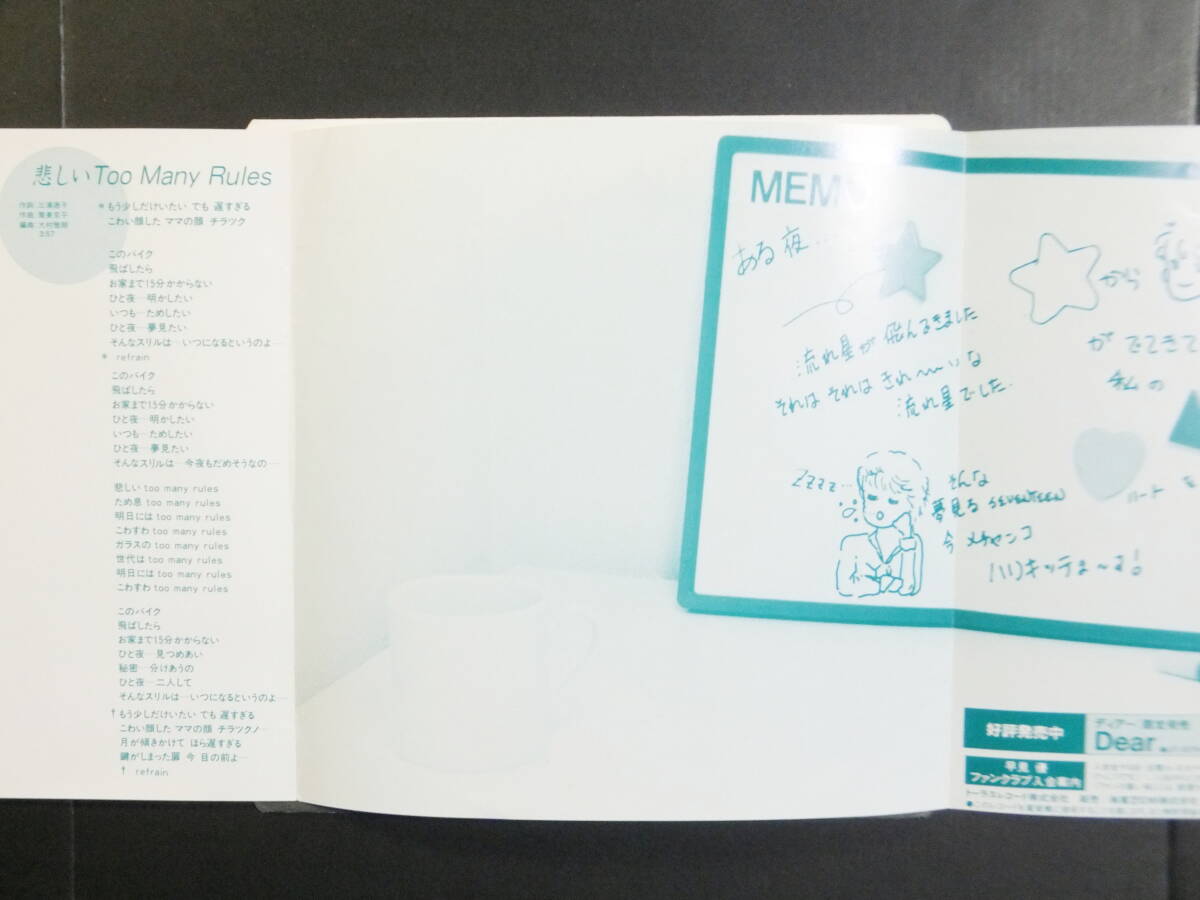 悲しいToo Many Rules
作詞:三浦徳子
作曲:尾見京子
編曲:大村雅朗
3:57
*もう少しだけいたい でも 遅すぎる
こわい顔した ママの顔 チラツク
このバイク
飛ばしたら
お家まで15分かからない
ひと夜…明かしたい
いつも…ためしたい
ひと夜…夢見たい
そんなスリルは…いつになるというのよ…
* refrain
このバイク
飛ばしたら
お家まで15分かからない
ひと夜…明かしたい
いつも…ためしたい
ひと夜…夢見たい
そんなスリルは…今夜もだめそうなの…
悲しい too many rules
ため息 too many rules
明日には too many rules
こわすわ too many rules
ガラスの too many rules
世代は too many rules
明日には too many rules
こわすわ too many rules
このバイク
飛ばしたら
お家まで15分かからない
ひと夜…見つめあい
秘密…分けあうの
ひと夜…二人して
そんなスリルは…いつになるというのよ…
†もう少しだけいたい でも 遅すぎる
こわい顔した ママの顔 チラツクノ…
月が傾きかけて ほら遅すぎる
鍵がしまった扉 今 目の前よ…
† refrain
MEMO
ある夜…
流れ星が飛んできました
それは それは きれ〜〜いな
流れ星でした.
Zzzz…
そんな
夢見る SEVENTEEN
今 メチャンコ
ハリキッテま〜す!
から
がでてきて
私の
ハート を
好評発売中
ディアー/限定発売
Dear
早見 優
ファンクラブ入会案内
トーラスレコード株式会社